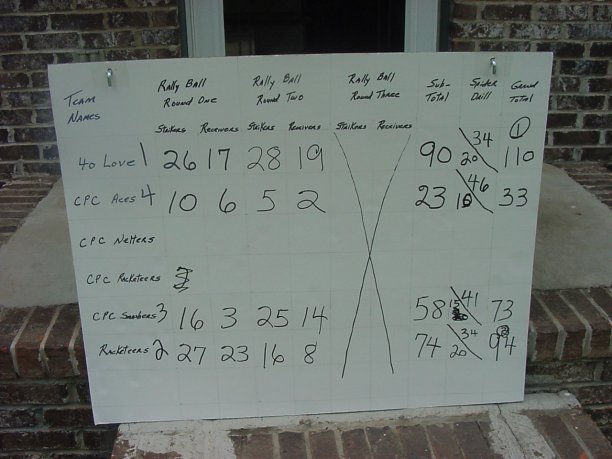 TEAM NAMES Rally Ball Round One Rally Ball Round Two Rally Ball Round Three Sub-Total Spider Drill Grand Total
Strikers Receivers Strikers Receivers Strikers Receivers
40 Love 1 26 17 28 19 90 20 34 110 1
CPC Aces 4 10 6 5 2 23 10 46 33
CPC Netters
CPC Racketeers
CPC Smashers 3 16 3 25 14 58 15 41 73
Racketeers 2 27 23 16 8 74 20 34 94 2